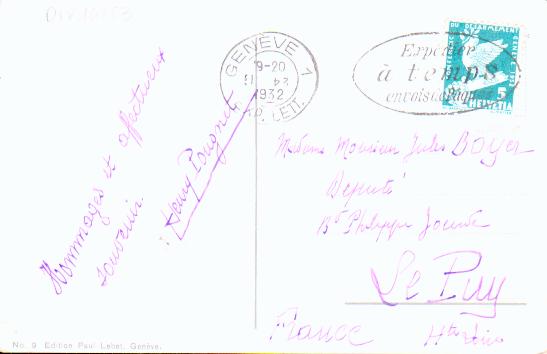 Hommages et affectueux
souvenir.
Henry
GENÈVE 1
19-20
1932
EXP. LETT.
Expédier
à temps
CONFÉRENCE DU DÉSARMEMENT GENÈVE 1932
5
HELVETIA
Madame Monsieur Jules Boyer
Député
Bd Philippe Jourde
Le Puy
France Hte Loire
No. 9 Edition Paul Lebet, Genève.